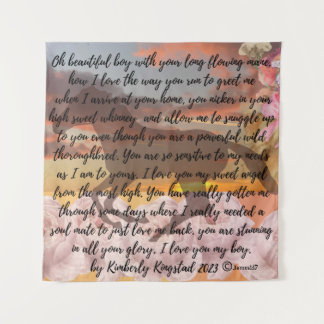 Oh beautiful boy with your long flowing mane,
how I love the way you run to greet me
when I arrive at your home, you nicker in your
high sweet whinney and allow me to snuggle up
to you even though you are a powerful wild
thoroughbred. You are so sensitive to my needs
as I am to yours. I love you my sweet angel
from the most high. You have really gotten me
through some days where I really needed a
soul mate to just love me back, you are stunning
in all your glory, I love you my boy.
by Kimberly Kingstad 2023 ©